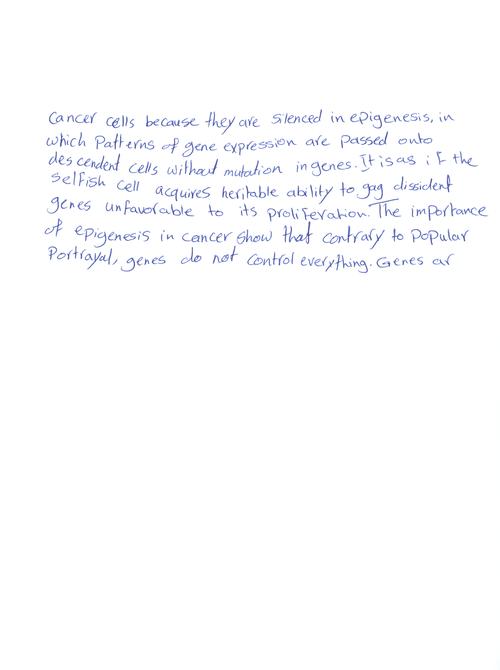 Cancer cells because they are silenced in epigenesis, in
which patterns of gene expression are passed onto
descendent cells without mutation in genes. It is as if the
selfish cell acquires heritable ability to gag dissident
genes unfavorable to its proliferation. The importance
of epigenesis in cancer show that contrary to popular
portrayal, genes do not control everything. Genes ar